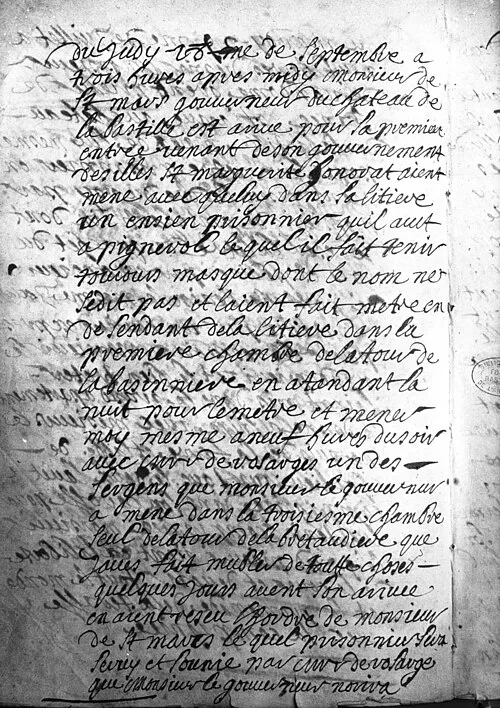 du judy 18me de Septembre a
trois hures apres midy monsieur de
St mars gouverneur du chateau de
la bastille est arive pour sa premier
entree venant de son gouvernement
desilles St marguerite honorat aient
mene avec queluy dans sa litiere
un ensien prisonnier quil avet
a pignerol le quel il fait tenir
toujours masque dont le nom ne
sedit pas et laient fait metre en
de sendant dela litiere dans la
premiere chambre delatour de
la basinniere en atendant la
nuit pour lemetre et mener
moy mesme aneuf hures dusoir
avec mr de rosarges un des
sergens que monsieur le gouverneur
a mene dans la troisiesme chambre
seul delatour dela bretaudiere que
javes fait meubler de toutte choses
quelques jours avent son arivee
en aient reseu lhordre de monsieur
de St mars le quel prisonnier sera
servy et sounie par mr de rosarge
que monsieur le gouverneur norira